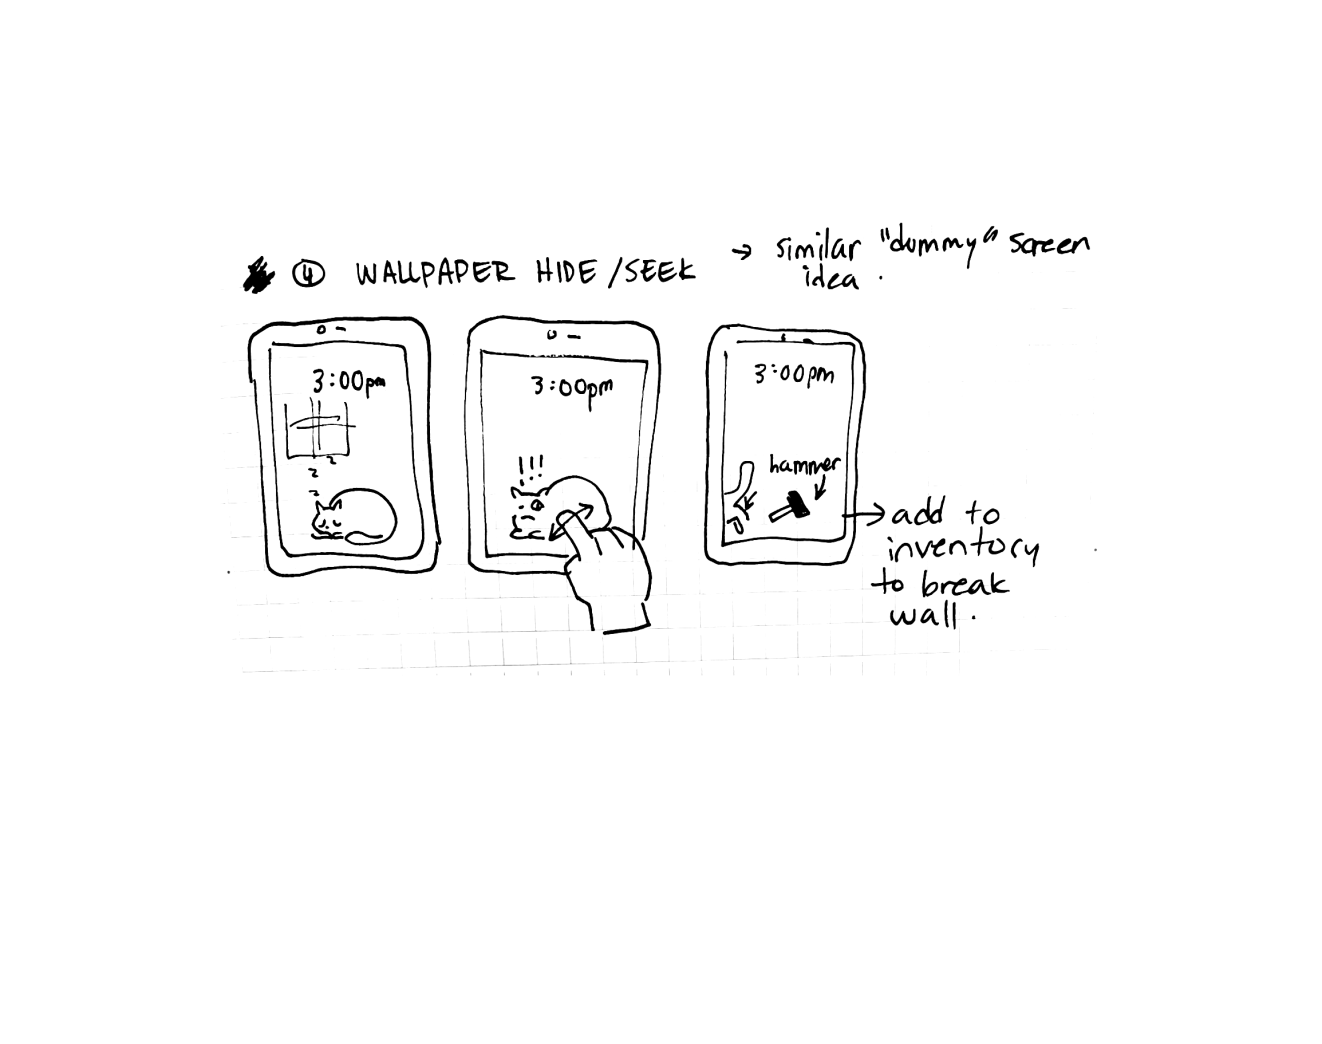 ④ WALLPAPER HIDE/SEEK
→ similar "dummy" screen
idea.
3:00pm
z
z
z
3:00pm
!!!
3:00pm
hammer
→ add to
inventory
to break
wall.